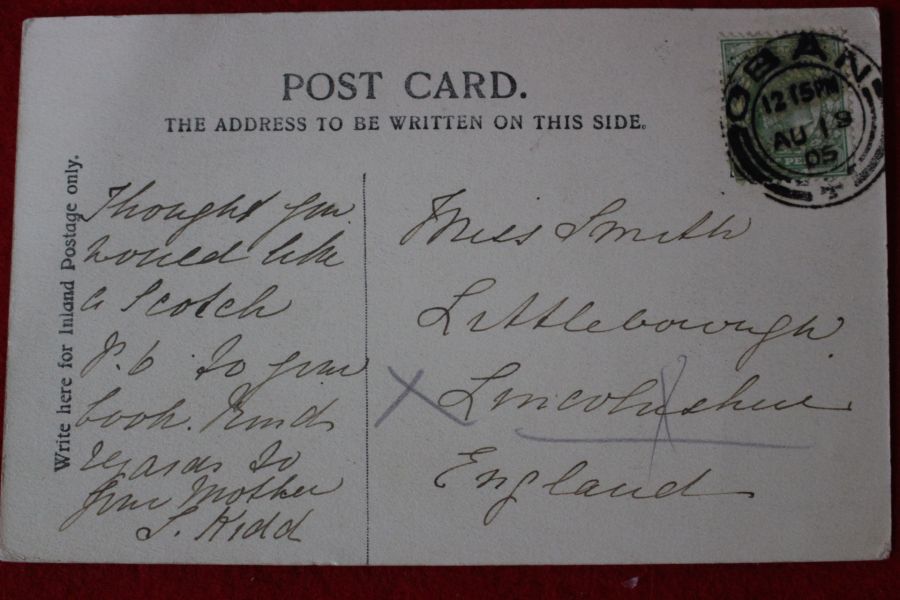 POST CARD.
THE ADDRESS TO BE WRITTEN ON THIS SIDE.
OBAN
12 15PM
AU 19
05
Write here for Inland Postage only.
Thought you
would like
a Scotch
P.C to your
book. Kind
regards to
your Mother
S. Kidd
Miss Smith
Littleborough
Lincolnshire
England